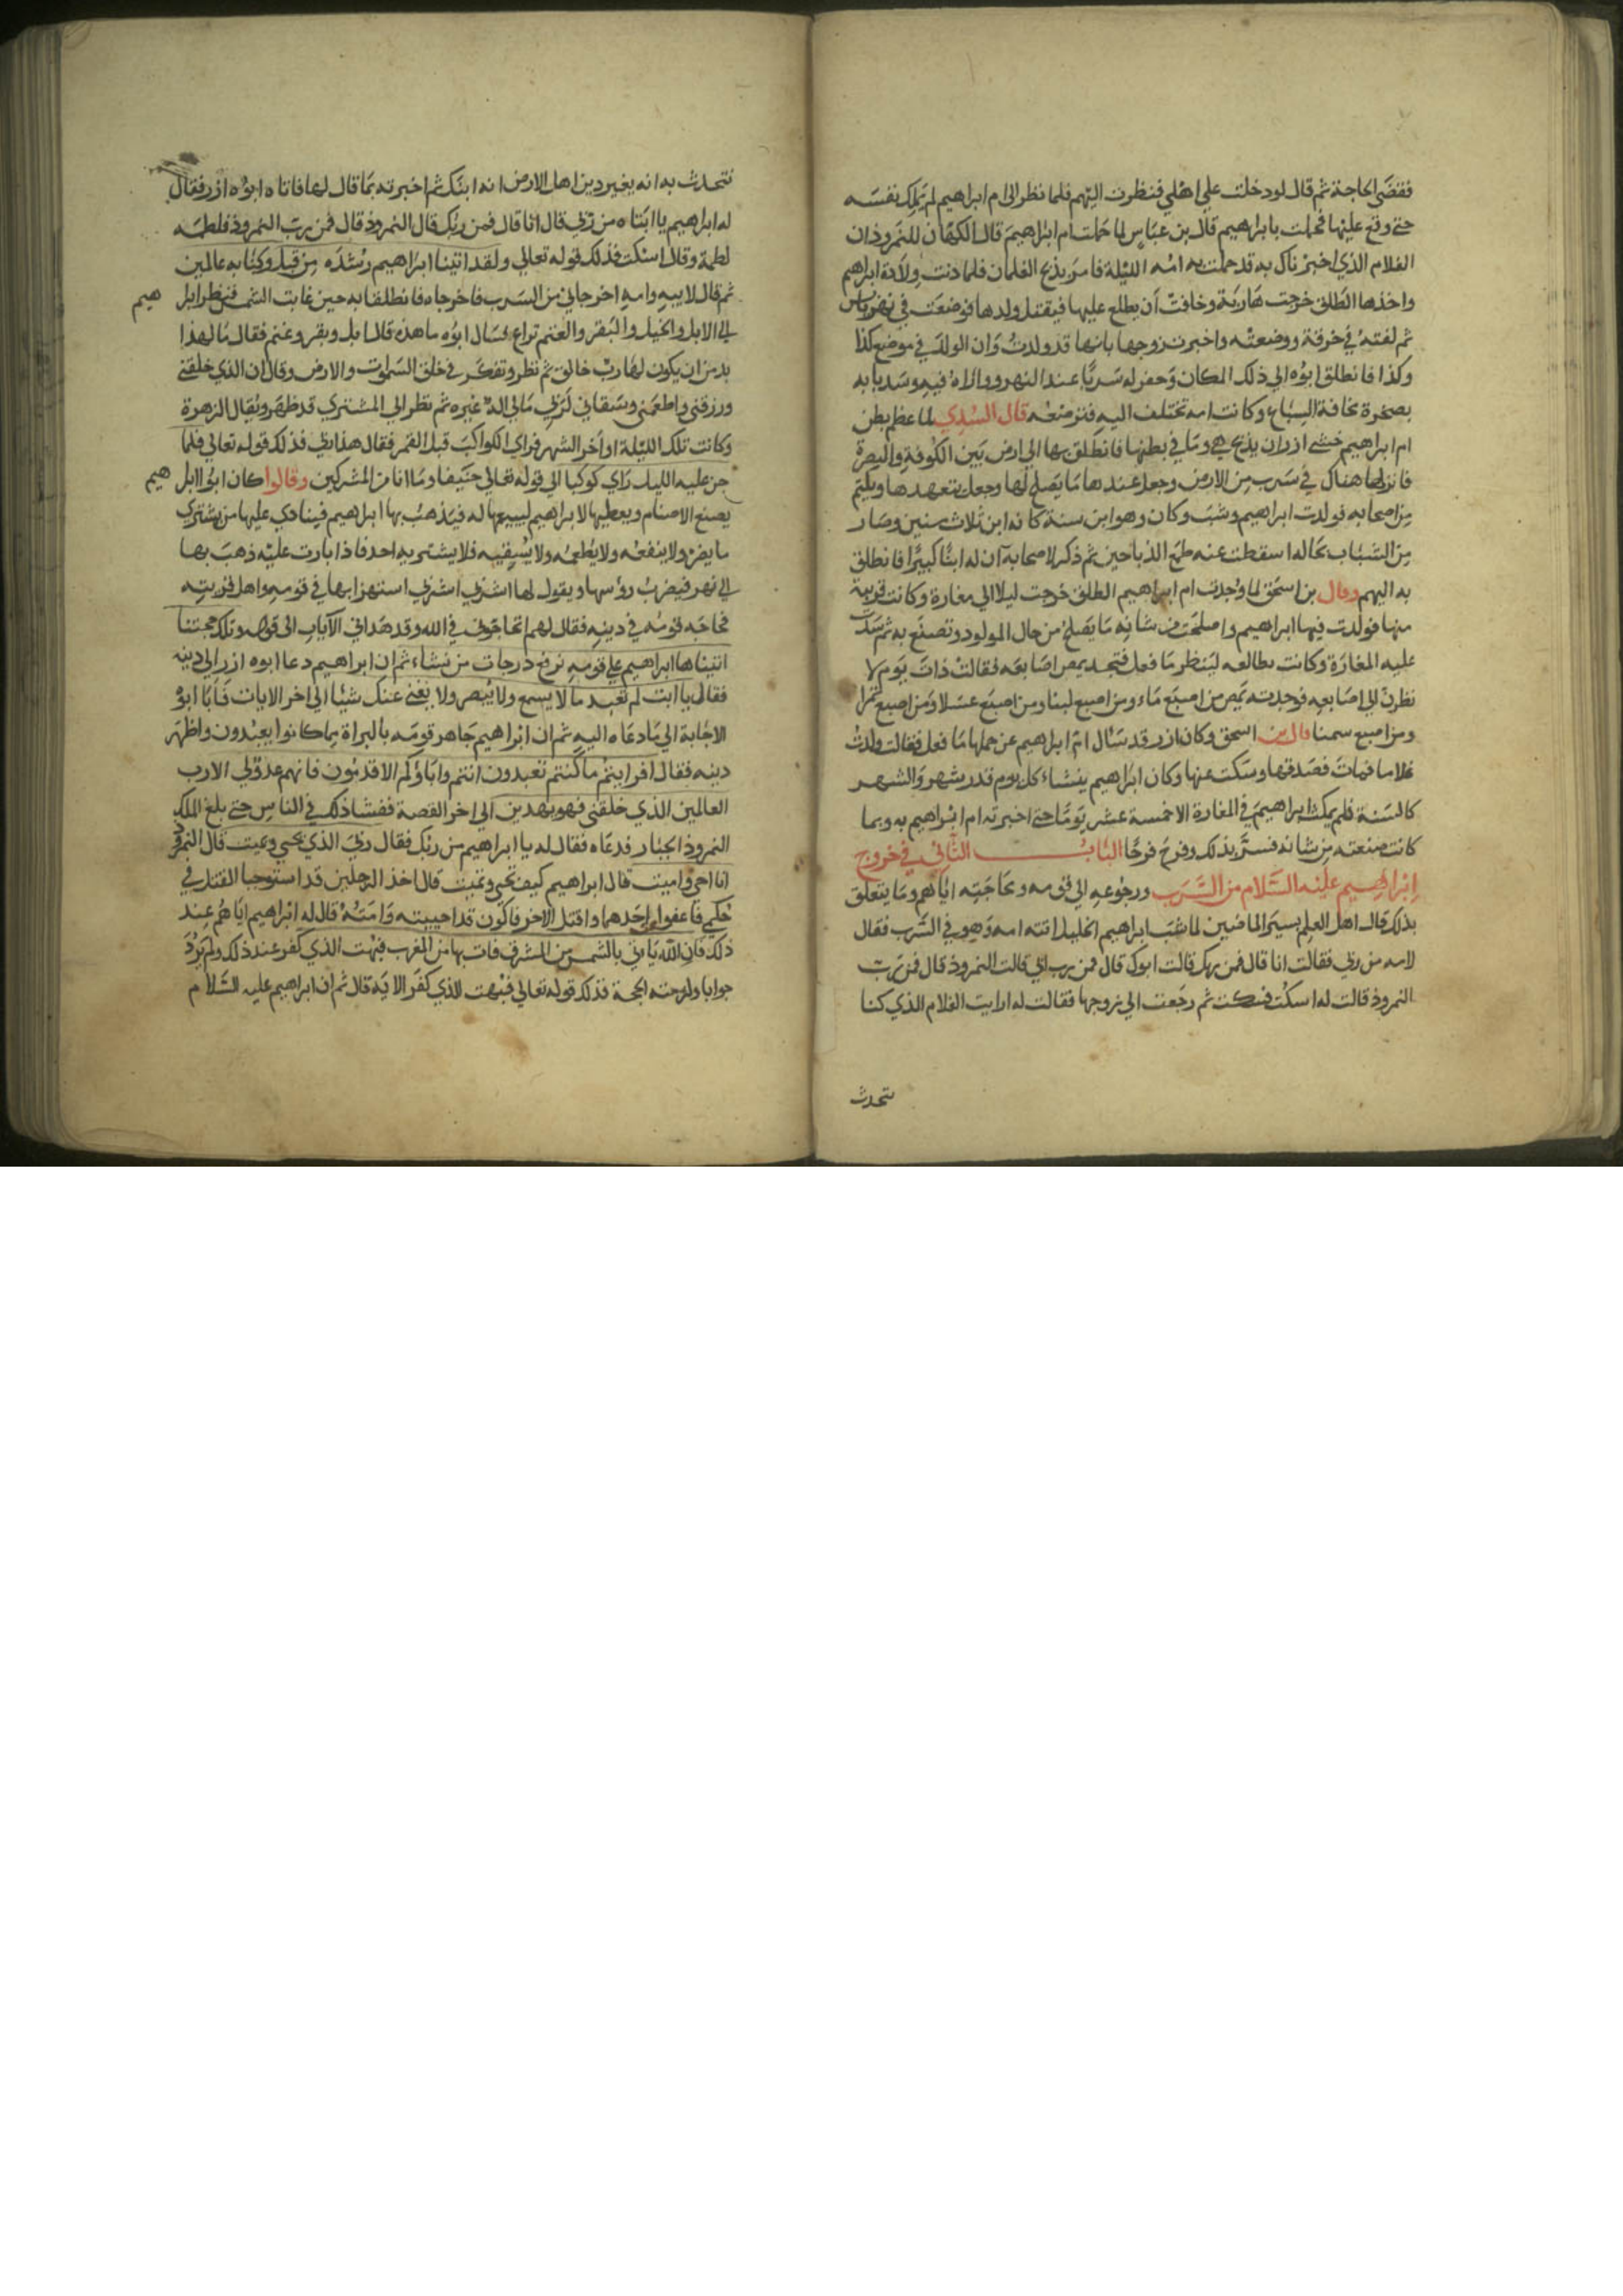 فقضى الحاجة ثم قال لو دخلت علي اهلي فنظرت اليهم فلما نظر الى ام ابراهيم لم يملك نفسه
حتى وقع عليها فحملت بابراهيم قال بن عباس لما حملت ام ابراهيم قال الكهان للنمروذ ان
الغلام الذي اخبرناك به قد حملت به امه الليلة فامر بذبح الغلمان فلما دنت ولادة ابراهيم
واخذها الطلق خرجت هاربة وخافت أن يطلع عليها فيقتل ولدها فوضعته في نهر يابس
ثم لفته في خرقة ووضعته واخبرت زوجها بانها قد ولدت وان الولد في موضع كذا
وكذا فانطلق ابوه الي ذلك المكان وحفر له سربا عند النهر وواراه فيه وسد بابه
بصخرة مخافة السباع وكانت امه تختلف اليه فترضعه قال السدي لما عظم بطن
ام ابراهيم خشي ازر ان يذبح هي وما في بطنها فانطلق بها الي ارض بين الكوفة والبصرة
فانزلها هناك في سرب من الارض وجعل عندها ما يصلح لها وجعل يتعهدها ويكتم
من اصحابه فولدت ابراهيم وشب وكان وهو ابن سنة كانه ابن ثلاث سنين وصار
من الشباب بحاله اسقطت عنه طمع الذباحين ثم ذكر لاصحابه ان له ابنا كبيرا فانطلق
به اليهم وقال بن اسحق لما وجدت ام ابراهيم الطلق خرجت ليلا الي مغارة وكانت قريبة
منها فولدت فيها ابراهيم واصلحت من شانه ما يصلح من حال المولود وتصنع به ثم سدت
عليه المغارة وكانت تطالعه لينظر ما فعل فتجد يمص اصابعه فقالت ذات يوم لا
نظرن الي اصابعه فوجدته يمص من اصبع ماء ومن اصبع لبنا ومن اصبع عسلا ومن اصبع تمرا
ومن اصبع سمنا قال بن اسحق وكان ازر قد سال ام ابراهيم عن حملها ما فعل فقالت ولدت
غلاما فمات فصدقها وسكت عنها وكان ابراهيم ينشاء كل يوم قدر شهر والشهر
كالسنة فلم يمكث ابراهيم في المغارة الا خمسة عشر يوما حتى اخبرته ام ابراهيم به وبما
كانت صنعته من شانه فسر بذلك وفرح فرحا الباب الثاني في خروج
ابراهيم عليه السلام من السرب ورجوعه الي قومه ومحاجته اياهم وما يتعلق
بذلك قال اهل العلم بسير الماضيين لما شب ابراهيم الخليل اتته امه وهو في السرب فقال
لامه من ربي فقالت انا قال فمن ربك قالت ابوك قال فمن رب ابي قالت النمروذ قال فمن رب
النمروذ قالت له اسكت فسكت ثم رجعت الي زوجها فقالت له ارايت الغلام الذي كنا
نتحدث
نتحدث به انه يغير دين اهل الارض انه ابنك ثم اخبرته بما قال لها فاتاه ابوه ازر فقال
له ابراهيم يا ابتاه من ربي قال انا قال فمن ربك قال النمروذ قال فمن رب النمروذ فلطمه
لطمة وقال اسكت فذلك قوله تعالي ولقد اتينا ابراهيم رشده من قبل وكنا به عالمين
ثم قال لابيه وامه اخرجاني من السرب فاخرجاه فانطلقا به حين غابت الشمس فنظر ابرا هيم
الي الابل والخيل والبقر والغنم تراع فسال ابوه ما هذه قال ابل وبقر وغنم فقال ما لهذا
بد من ان يكون لها رب خالق ثم نظر وتفكر في خلق السموات والارض وقال ان الذي خلقني
ورزقني واطعمني وسقاني لربي مالي اله غيره ثم نظر الي المشتري قد ظهر ويقال الزهرة
وكانت تلك الليلة اواخر الشهر فراي الكواكب قبل القمر فقال هذا ربي فذلك قوله تعالي فلما
جن عليه الليل راي كوكبا الي قوله تعالي حنيفا وما انا من المشركين وقالوا كان ابوا ابرا هيم
يصنع الاصنام ويعطيها لابراهيم ليبيعها له فيذهب بها ابراهيم فينادي عليها من يشتري
ما يضر ولا ينفعه ولا يطعمه ولا يسقيه فلا يشتريه احد فاذا بارت عليه ذهب بها
الي نهر فيضرب رؤسها ويقول لها اشربي اشربي استهزا بها في قومه واهل قريته
فحاجه قومه في دينه فقال لهم اتحاجوني في الله وقد هداني الآيات الى قوله وتلك حجتنا
اتيناها ابراهيم علي قومه نرفع درجات من نشاء ثم ان ابراهيم دعا ابوه ازر الي دينه
فقال يا ابت لم تعبد ما لا يسمع ولا يبصر ولا يغني عنك شيئا الي اخر الايات فابا ابوه
الاجابة الي ما دعاه اليه ثم ان ابراهيم جاهر قومه بالبراة مما كانوا يعبدون واظهر
دينه فقال افرايتم ما كنتم تعبدون انتم واباؤكم الاقدمون فانهم عدو لي الا رب
العالمين الذي خلقني فهو يهدين الي اخر القصة ففشا ذلك في الناس حتى بلغ الملك
النمروذ الجبار فدعاه فقال له يا ابراهيم من ربك فقال ربي الذي يحيي ويميت قال النمروذ
انا احي واميت قال ابراهيم كيف تحيي وتميت قال اخذ الرجلين قد استوجبا القتل في
حكمي فاعفوا احدهما واقتل الاخر فاكون قد احييته وامته قال له ابراهيم اياهم عند
ذلك فان الله ياتي بالشمس من المشرق فات بها من المغرب فبهت الذي كفر عند ذلك ولم يرد
جوابا ولزمته الحجة فذلك قوله تعالي فبهت الذي كفر الاية قال ثم ان ابراهيم عليه السلام